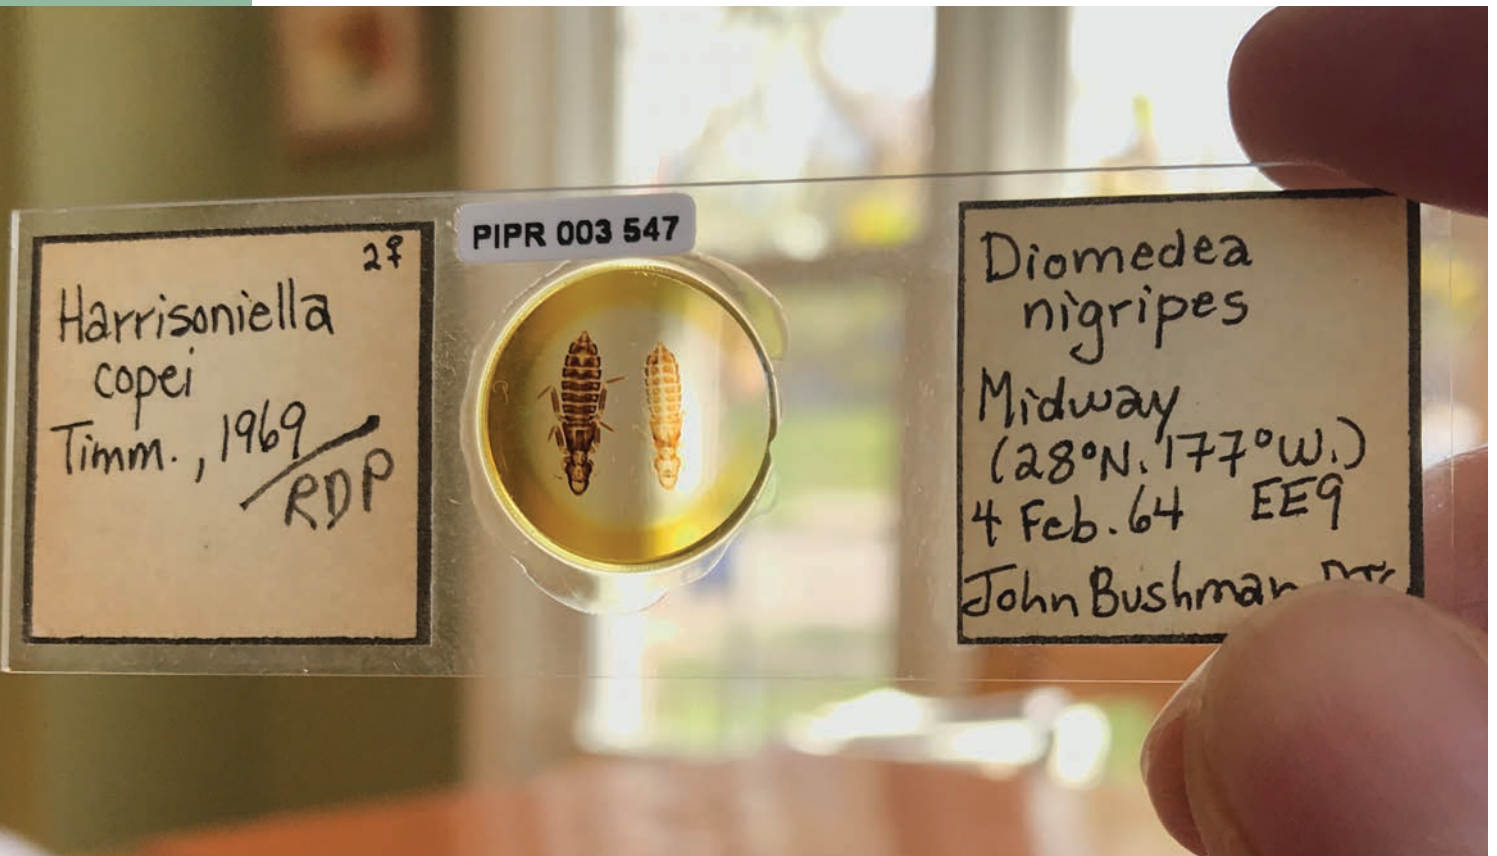 2♀
Harrisoniella
copei
Timm., 1969
RDP
PIPR 003 547
Diomedea
nigripes
Midway
(28°N. 177°W.)
4 Feb. 64 EE9
John Bushman